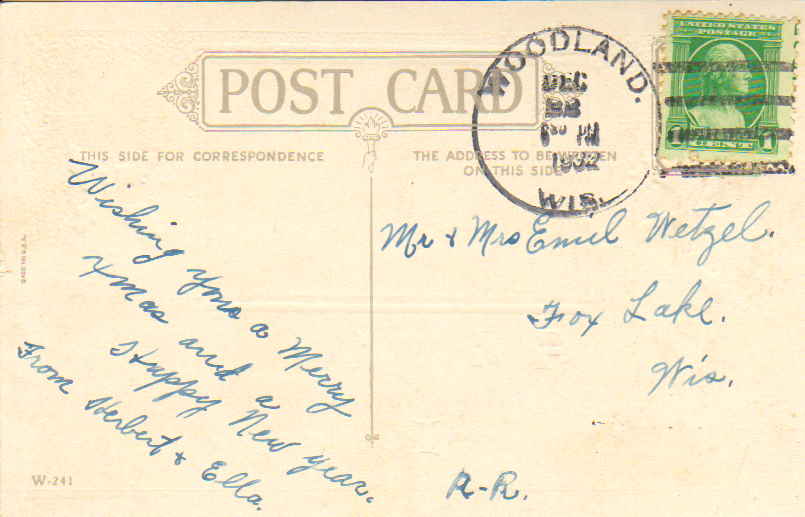 POST CARD
THIS SIDE FOR CORRESPONDENCE
THE ADDRESS TO BE WRITTEN
ON THIS SIDE
WOODLAND.
DEC
PM
1932
WIS.
UNITED STATES
POSTAGE
1 1
Wishing you a Merry
Xmas and a
Happy New Year.
From Herbert & Ella.
Mr & Mrs Emil Wetzel.
Fox Lake.
Wis.
R-R.
MADE IN U.S.A.
W-241